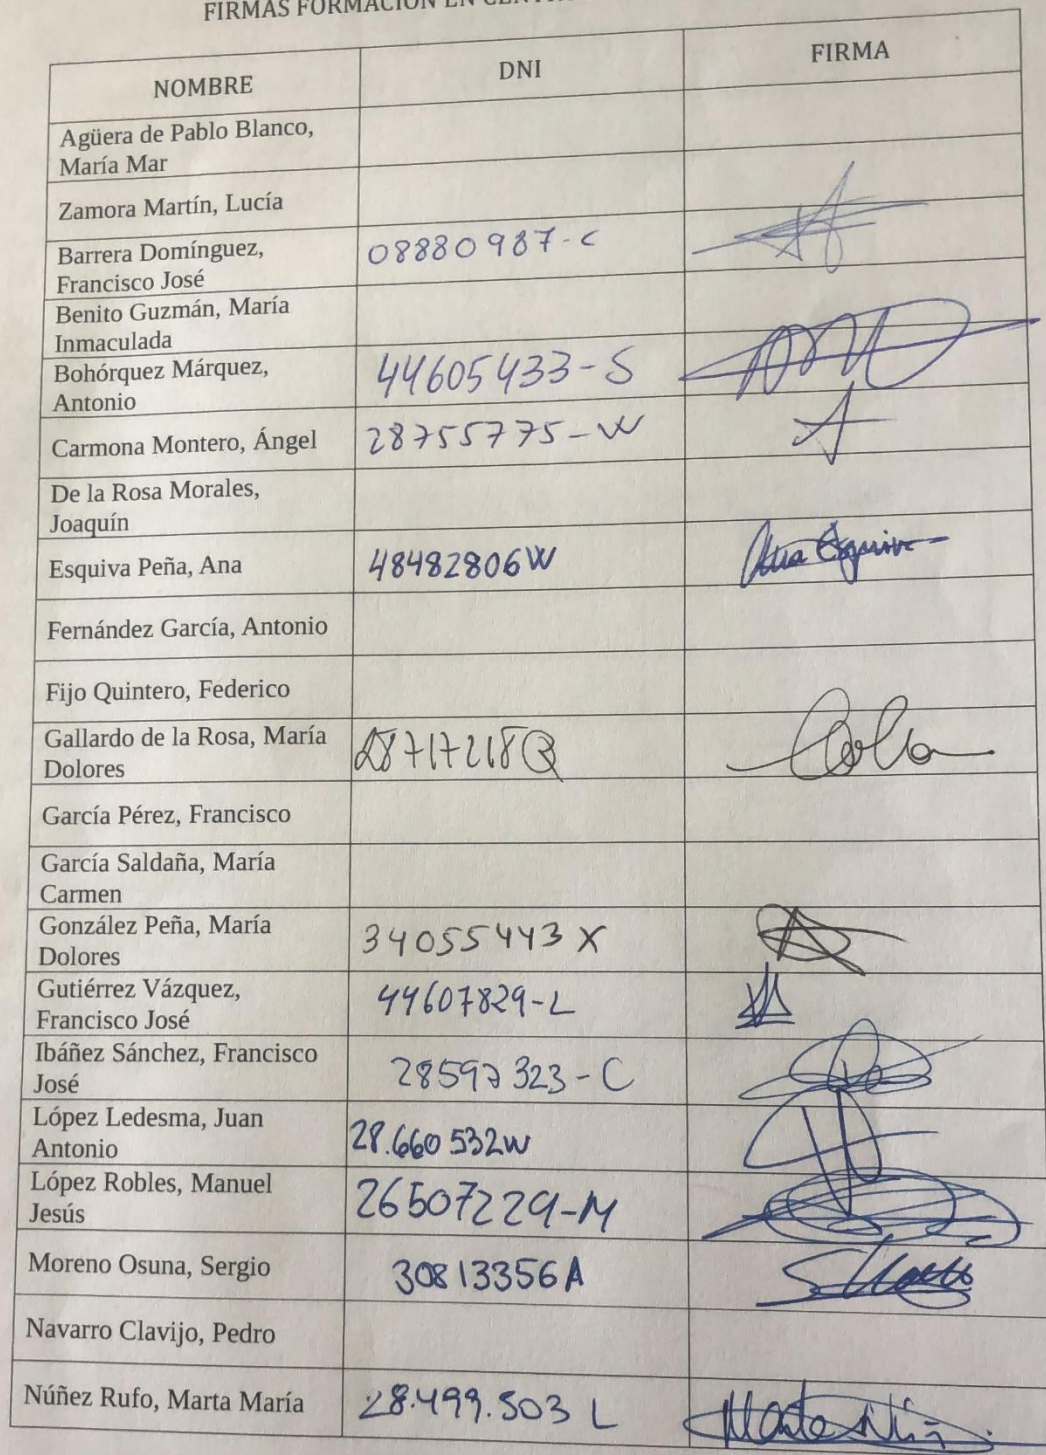 FIRMAS FORMACIÓN EN
NOMBRE DNI FIRMA
Agüera de Pablo Blanco,
María Mar
Zamora Martín, Lucía
Barrera Domínguez, 08880987-C
Francisco José
Benito Guzmán, María
Inmaculada
Bohórquez Márquez, 44605433-S
Antonio
Carmona Montero, Ángel 28755775-W
De la Rosa Morales,
Joaquín
Esquiva Peña, Ana 48482806W Ana Esquiva
Fernández García, Antonio
Fijo Quintero, Federico
Gallardo de la Rosa, María 28717218Q
Dolores
García Pérez, Francisco
García Saldaña, María
Carmen
González Peña, María 34055443X
Dolores
Gutiérrez Vázquez, 44607829-L
Francisco José
Ibáñez Sánchez, Francisco 28597323-C
José
López Ledesma, Juan 28.660532W
Antonio
López Robles, Manuel 26507229-M
Jesús
Moreno Osuna, Sergio 30813356A
Navarro Clavijo, Pedro
Núñez Rufo, Marta María 28.499.503 L